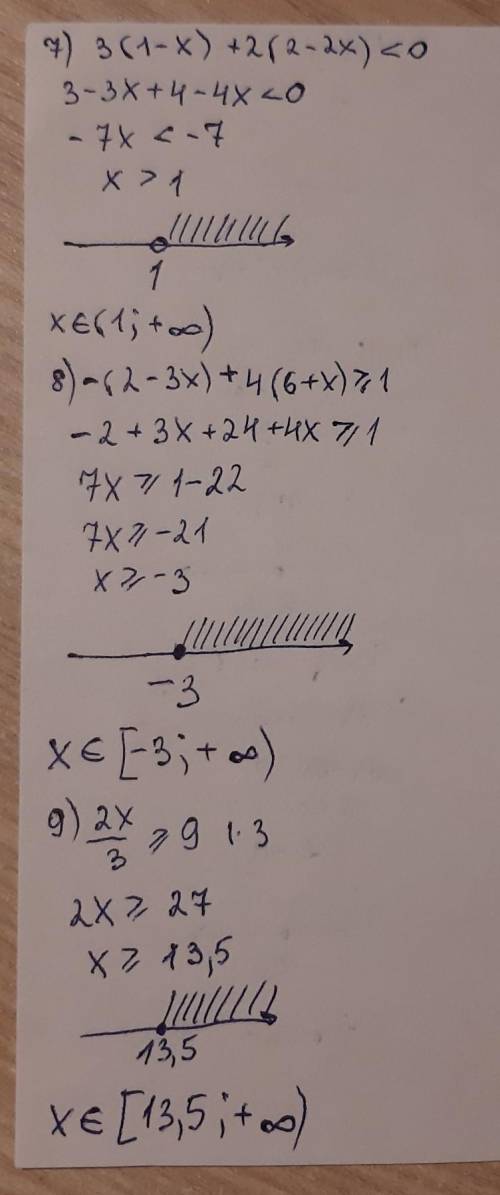 7) 3(1-x) +2(2-2x)<0
3-3x+4-4x<0
-7x < -7
x > 1
1
x∈(1;+∞)
8) -(2-3x)+4(6+x)⩾1
-2+3x+24+4x⩾1
7x⩾1-22
7x⩾-21
x⩾-3
-3
x∈[-3;+∞)
9) 2x/3 ⩾ 9 |·3
2x⩾ 27
x⩾ 13,5
13,5
x∈[13,5;+∞)